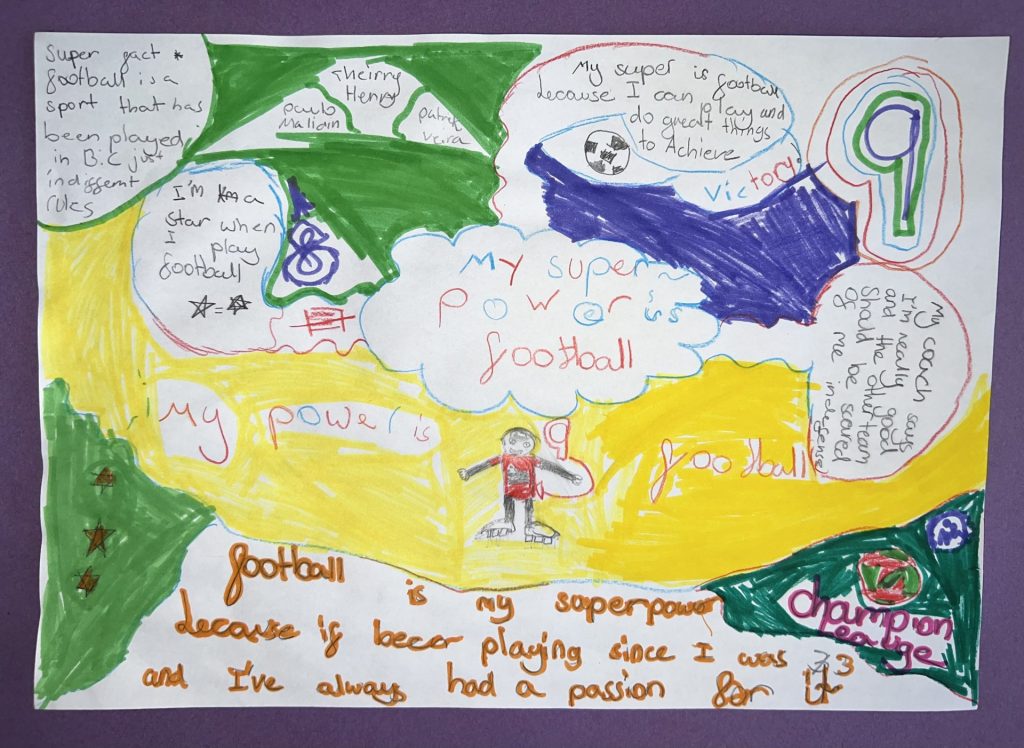 Super fact *
football is a
sport that has
been played
in B.C just
in different
rules
Theirry
Henry
paulo
Malidin
patrik
Veira
My super is football
because I can play and
do great things
to Achieve
Victory
9
I'm a
star when
I play
football
=
8
My super
power is
football
My coach says
I'm really good
and the other team
should be scared
of me in defense
My power is
football
9
football is my superpower
because if beer playing since I was 3
and I've always had a passion for it
Champion
League